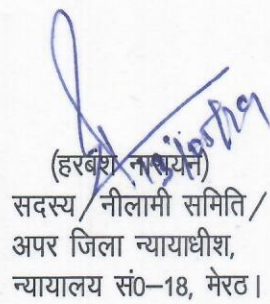 (हरबंश नारायन)
सदस्य/नीलामी समिति/
अपर जिला न्यायाधीश,
न्यायालय सं0–18, मेरठ।